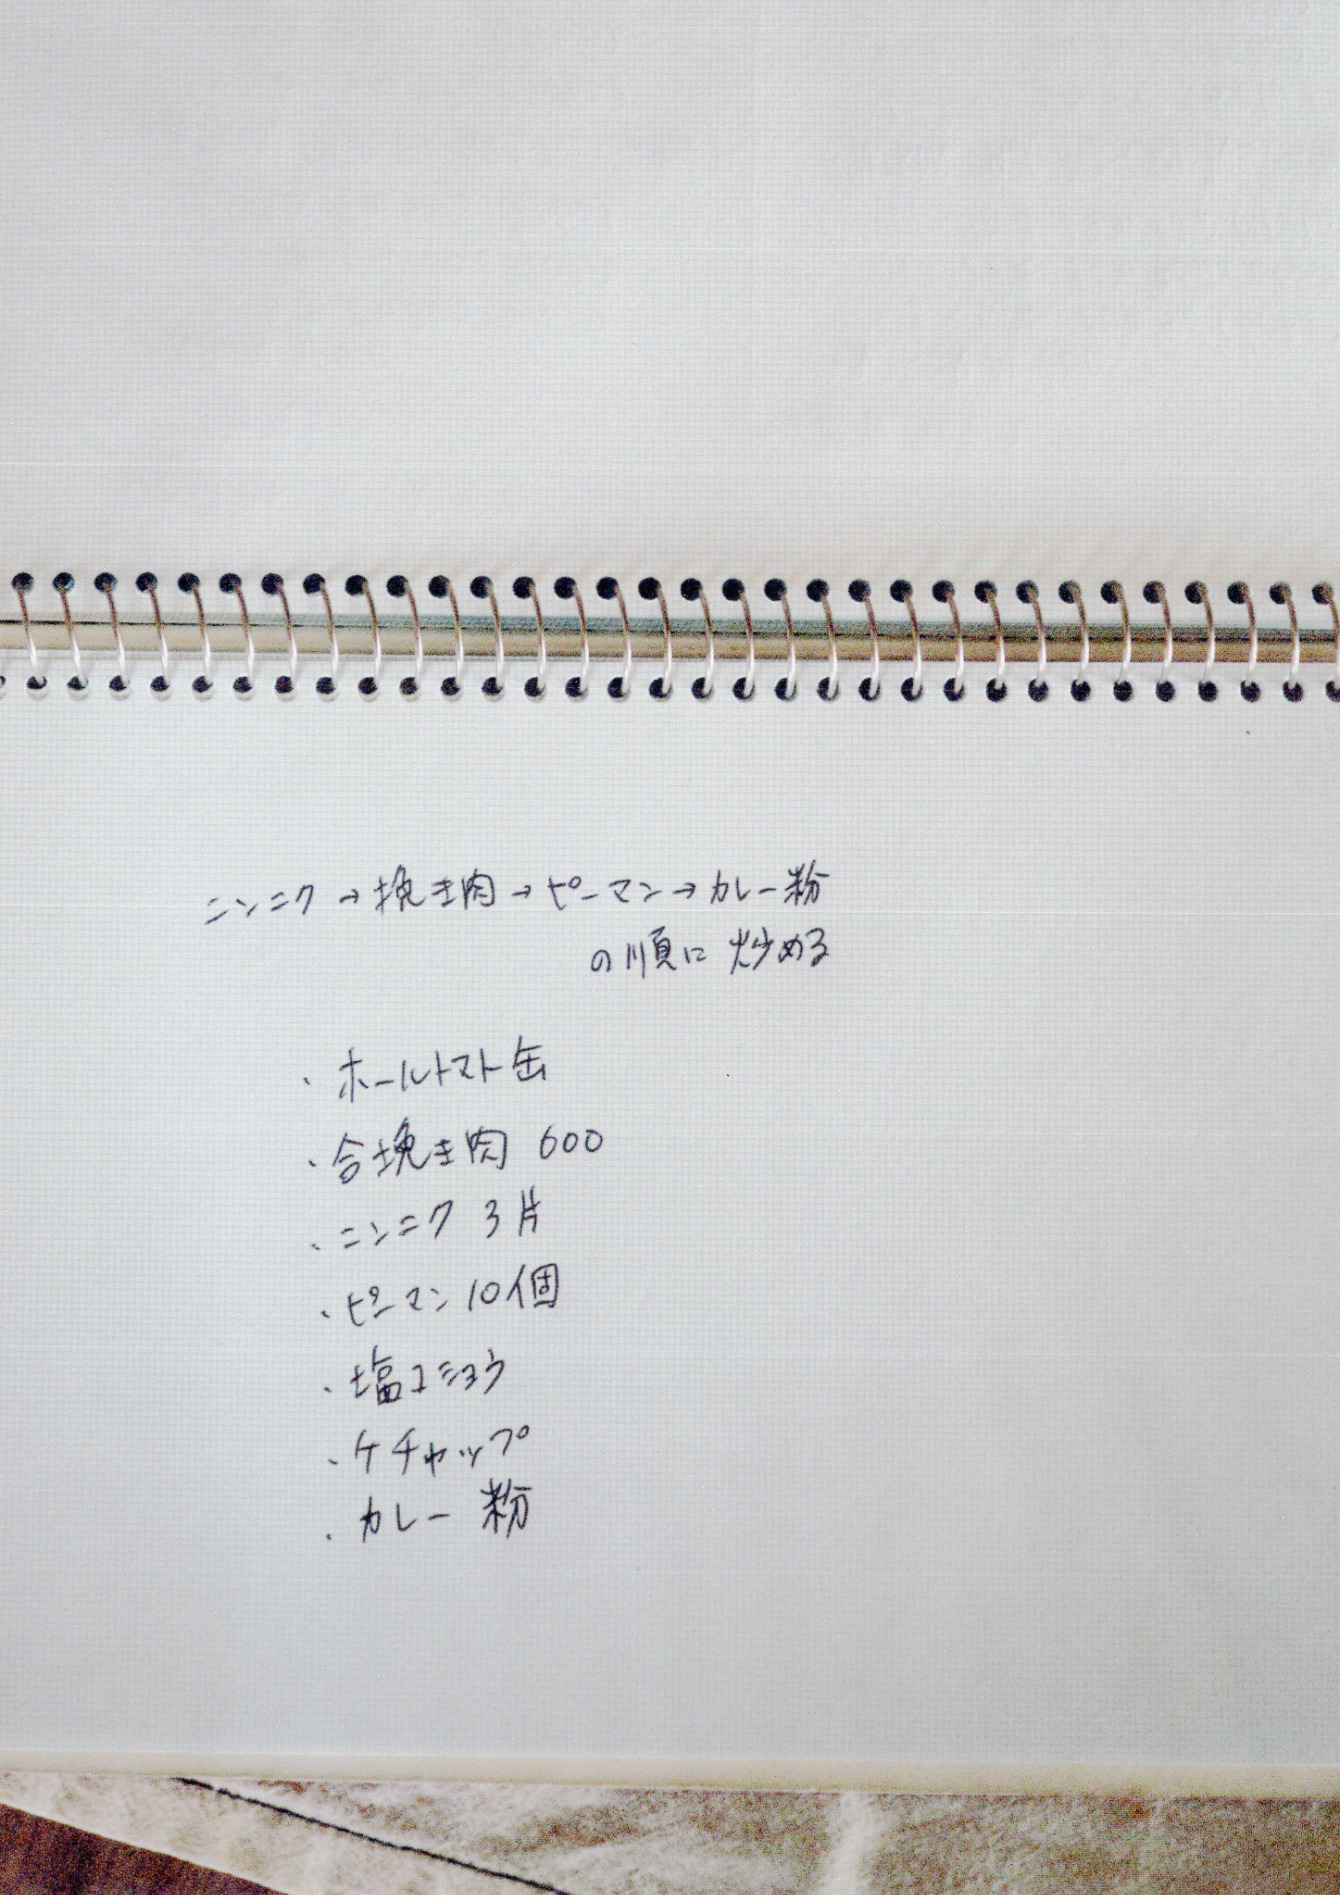 ニンニク→挽き肉→ピーマン→カレー粉
の順に炒める
・ホールトマト缶
・合挽き肉 600
・ニンニク 3片
・ピーマン 10個
・塩コショウ
・ケチャップ
・カレー粉